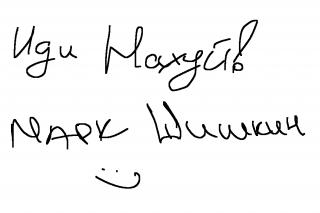 Иди Нахуй
Марк Шишкин
:)